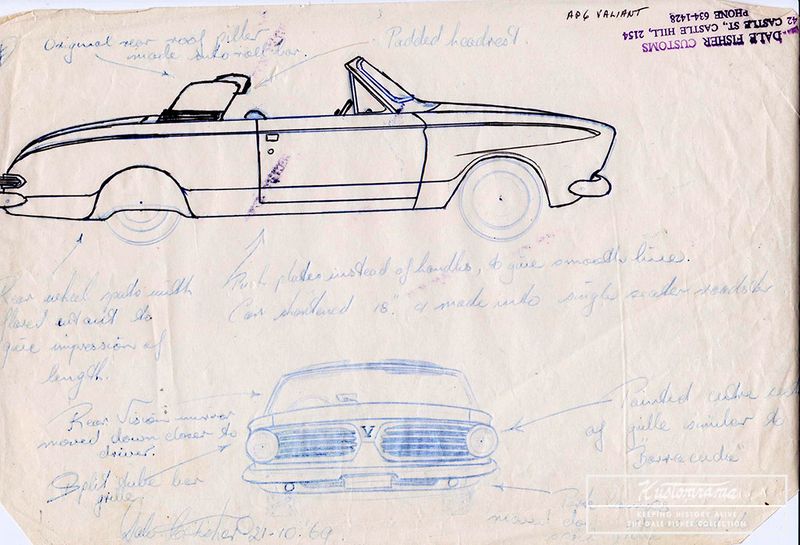 AP6 VALIANT
DALE FISHER CUSTOMS
42 CASTLE ST., CASTLE HILL, 2154
PHONE 634-1428
Original rear roof piller
made into roll bar.
Padded headrest.
Rear wheel
to
give impression of
length.
Push plates instead of handles, to give smooth line.
Car shortened 18" & made into single seater roadster
Rear Vision mirror
moved down closer to
driver.
Split tube bar
grille
Painted
of grille similar to
"Barracuda"
moved
21-10.69
V
Kustomrama
KEEPING HISTORY ALIVE
THE DALE FISHER COLLECTION